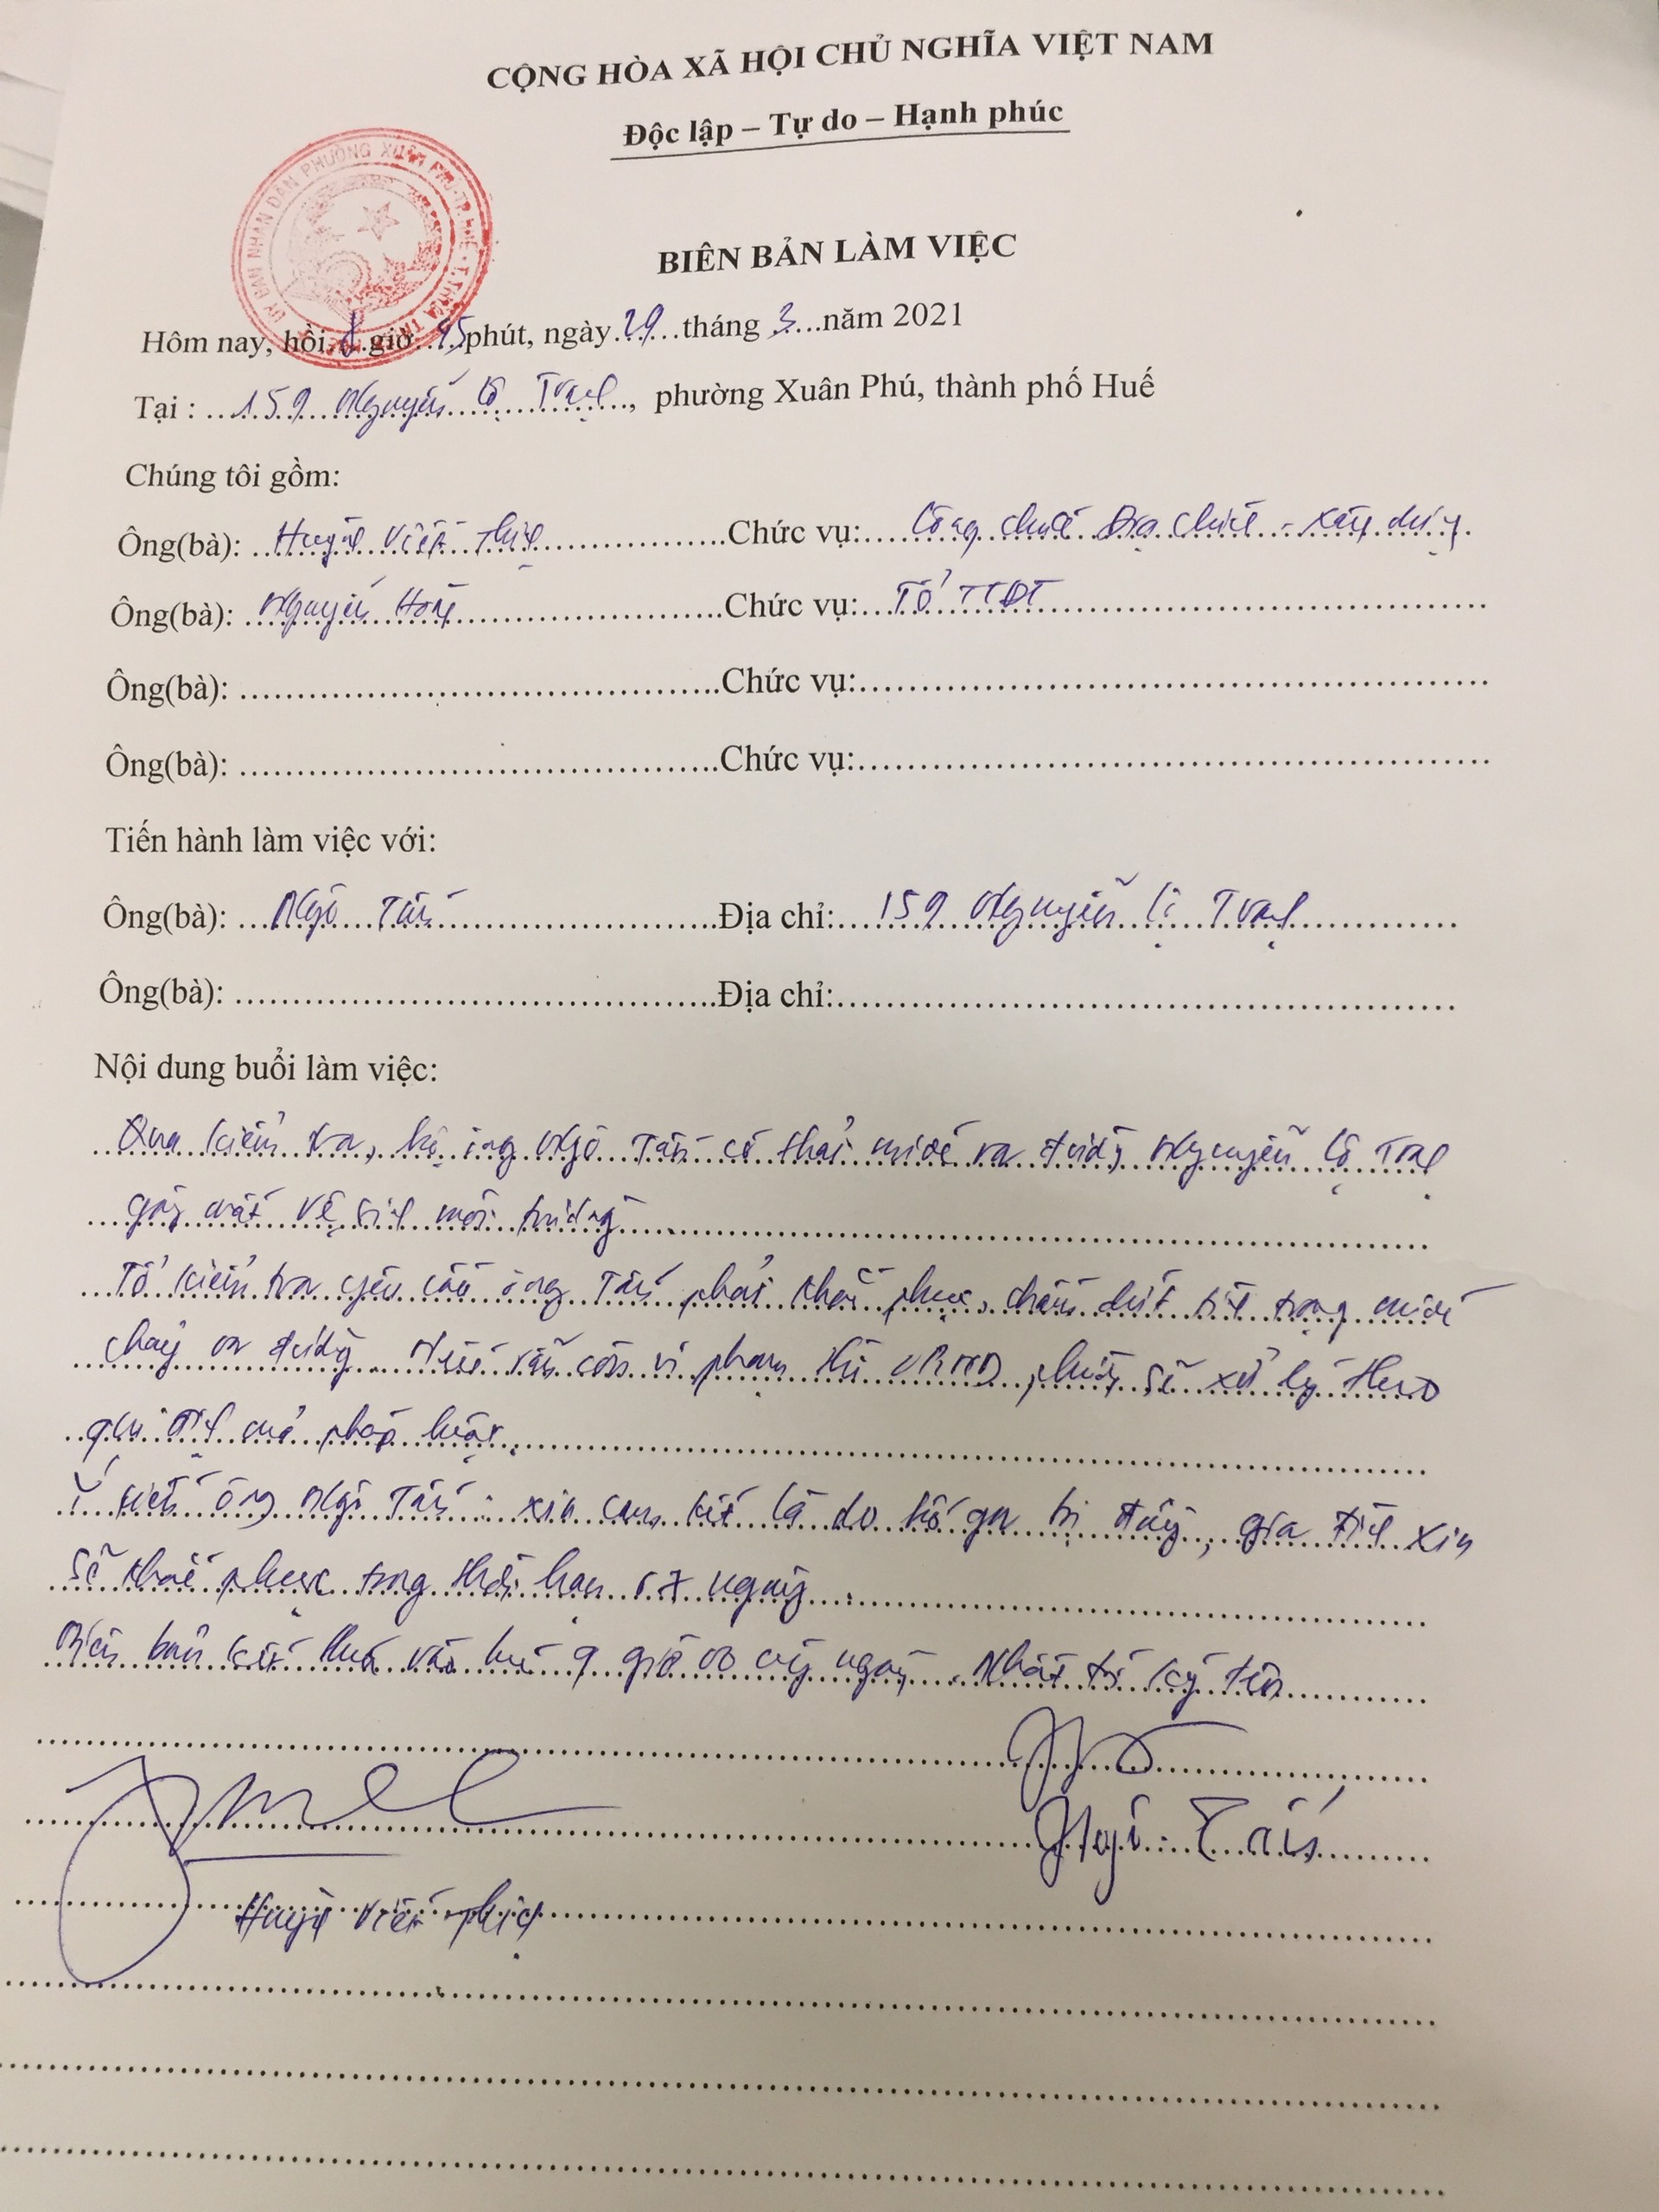 CỘNG HÒA XÃ HỘI CHỦ NGHĨA VIỆT NAM
Độc lập – Tự do – Hạnh phúc
ỦY BAN NHÂN DÂN PHƯỜNG XUÂN PHÚ-TP.HUẾ-T.THỪA
BIÊN BẢN LÀM VIỆC
Hôm nay, hồi 8 giờ 45 phút, ngày 29 tháng 3 năm 2021
Tại : 159 Nguyễn Lộ Trạch, phường Xuân Phú, thành phố Huế
Chúng tôi gồm:
Ông(bà): Huỳnh Viết Chức vụ: Công chức Địa chính - Xây dựng
Ông(bà): Nguyễn Chức vụ: Tổ TTĐT
Ông(bà): Chức vụ:
Ông(bà): Chức vụ:
Tiến hành làm việc với:
Ông(bà): Ngô Tấn Địa chỉ: 159 Nguyễn Lộ Trạch
Ông(bà): Địa chỉ:
Nội dung buổi làm việc:
Qua kiểm tra, hộ ông Ngô Tấn có thải nước ra đường Nguyễn Lộ Trạch
gây mất vệ sinh môi trường
Tổ kiểm tra yêu cầu ông Tấn phải khắc phục, chấm dứt tình trạng nước
chảy ra đường. Nếu vẫn còn vi phạm thì UBND phường sẽ xử lý theo
qui định của pháp luật.
Ý kiến ông Ngô Tấn: xin cam kết là do hố ga bị đầy, gia đình xin
sẽ khắc phục trong thời hạn 07 ngày.
Biên bản kết thúc vào lúc 9 giờ 00 cùng ngày. Nhất trí ký tên
Ngô Tấn
Huỳnh Viết